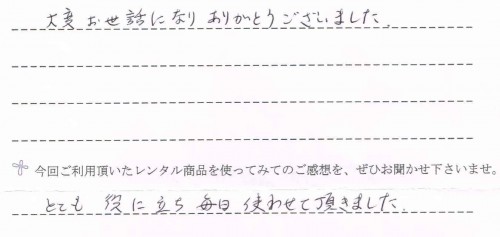 大変お世話になりありがとうございました.
今回ご利用頂いたレンタル商品を使ってみてのご感想を、ぜひお聞かせ下さいませ。
とても 役に立ち 毎日 使わせて頂きました.